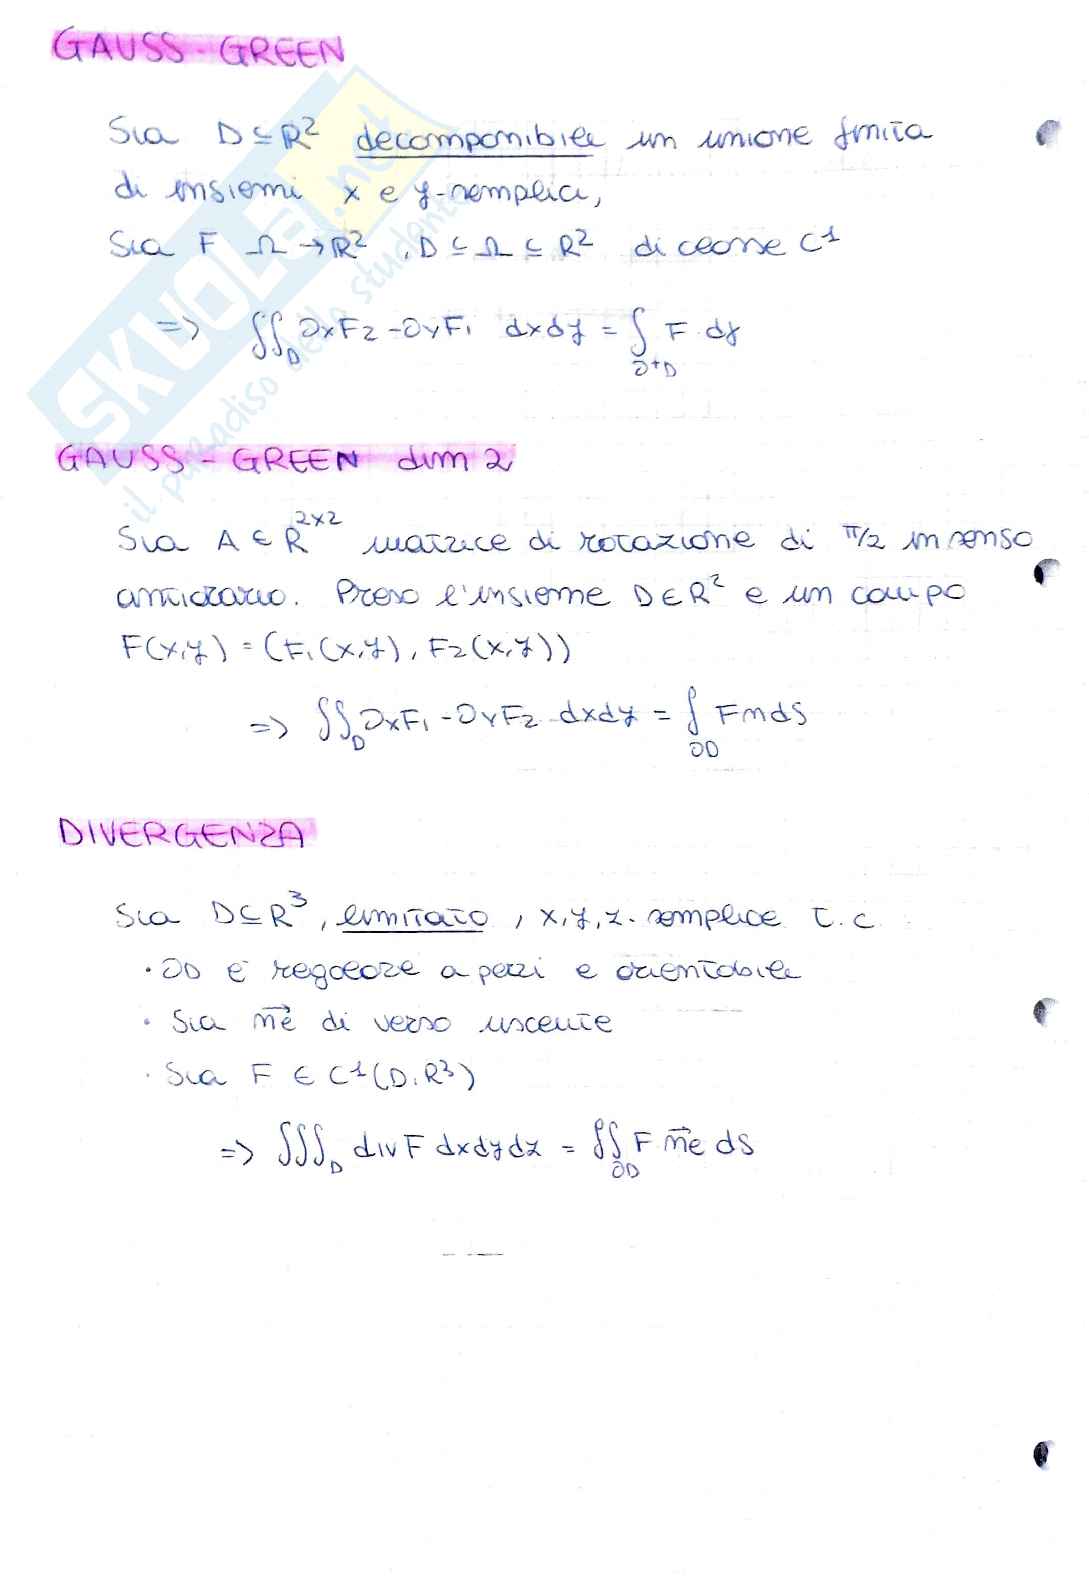 GAUSS - GREEN
Sia D ⊆ R² decomponibile in unione finita
di insiemi x e y-semplici,
Sia F Ω → R², D ⊆ Ω ⊆ R² di classe C¹
=> ∬_D ∂xF2 - ∂yF1 dxdy = ∫_∂+D F dγ
GAUSS - GREEN dim 2
Sia A ∈ R^2x2 matrice di rotazione di π/2 in senso
antiorario. Preso l'insieme D ∈ R² e un campo
F(x,y) = (F1(x,y), F2(x,y))
=> ∬_D ∂xF1 - ∂yF2 dxdy = ∮_∂D F n dS
DIVERGENZA
Sia D ⊆ R³, limitato, x,y,z-semplice t.c.
· ∂D è regolare a pezzi e orientabile
· Sia n⃗e di verso uscente
· Sia F ∈ C¹(D,R³)
=> ∭_D div F dxdydz = ∯_∂D F n⃗e dS
SKUOLA.net
il paradiso dello studente